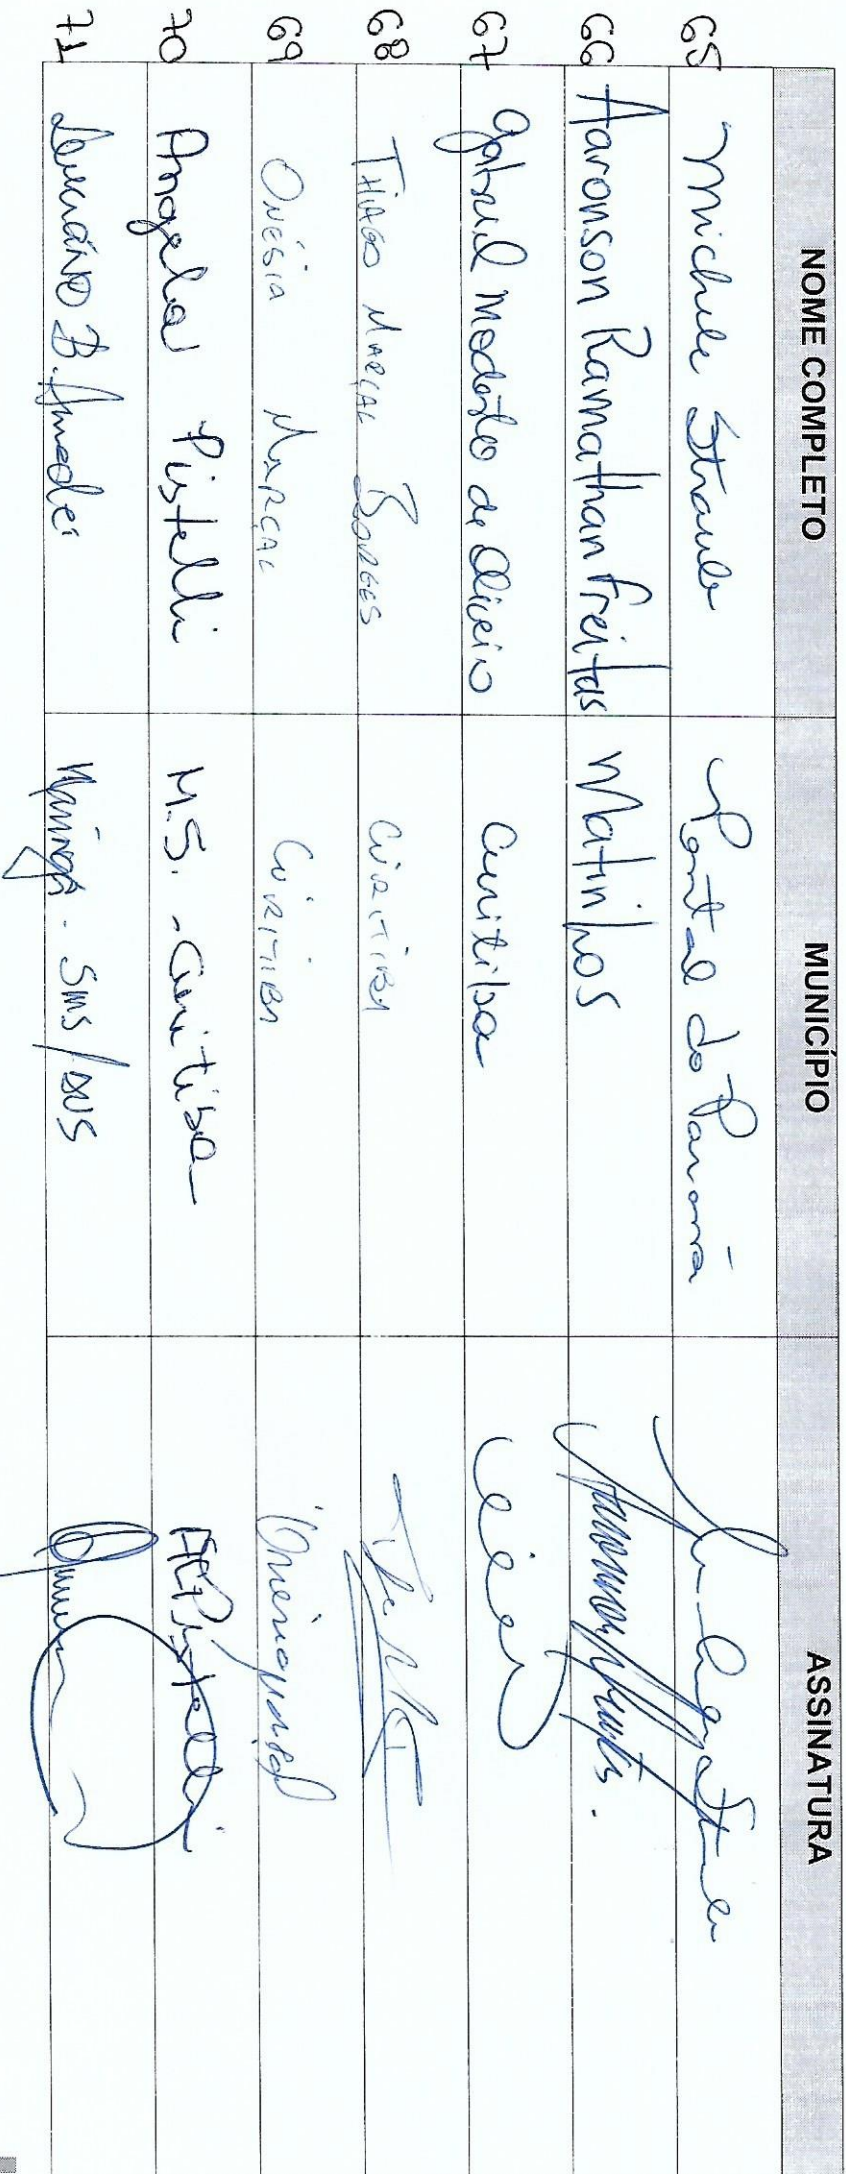 NOME COMPLETO MUNICÍPIO ASSINATURA
65 Michele Straub Pontal do Paraná
66 Aaronson Ramathan Freitas Matinhos
67 Gabriel Modesto de Oliveira Curitiba
68 THIAGO MARÇAL BORGES CURITIBA
69 ONÉSIA MARÇAL CURITIBA
70 Angela Pistelli M.S. - Curitiba ACPistelli
71 B. Amadei Maringá - SMS/